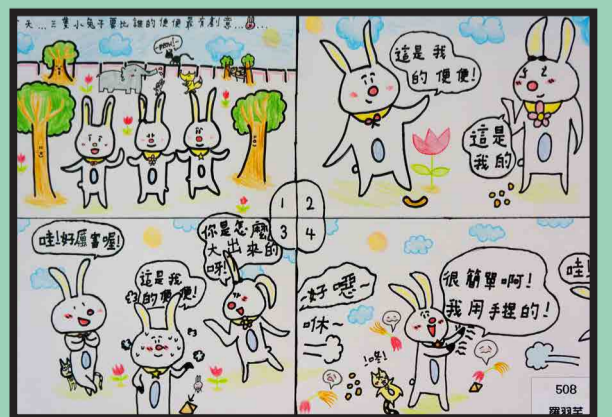 天…三隻小兔子要比誰的便便最有創意……
~meow!~
這是我
的便便!
這是
我的
1
2
3
4
哇!好厲害喔!
這是我
的便便!
你是怎麼
大出來的
呀!
~好噁~
咻~
很簡單啊!
我用手捏的!
哇!
!咚!
508
羅羽芊